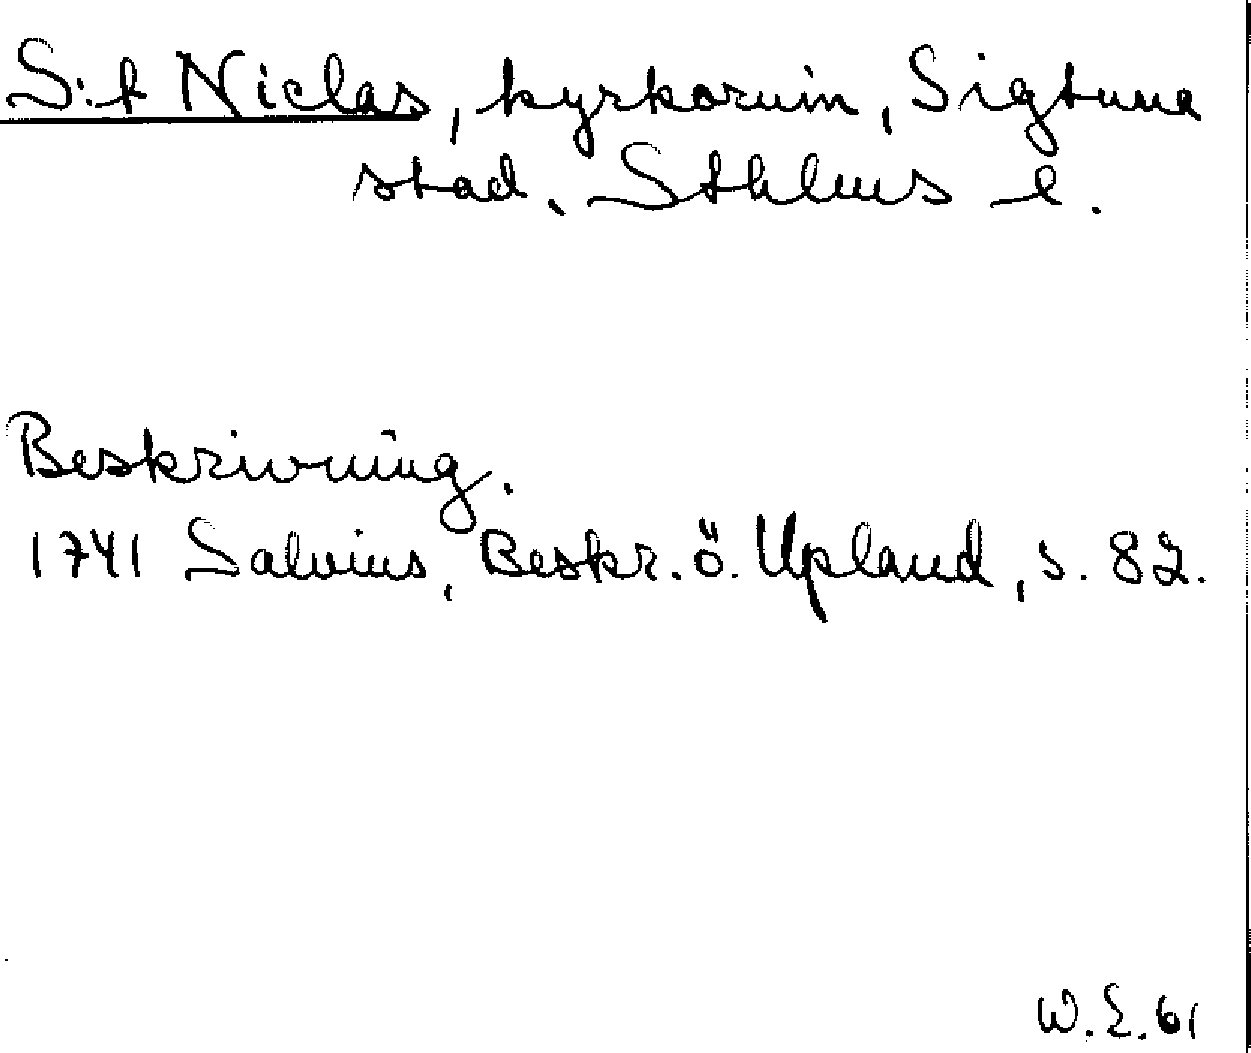 S:t Niclas, kyrkoruin, Sigtuna
stad, Sthlms l.
Beskrivning.
1741 Salvius, Beskr. ö. Upland, s. 82.
W.E. 61